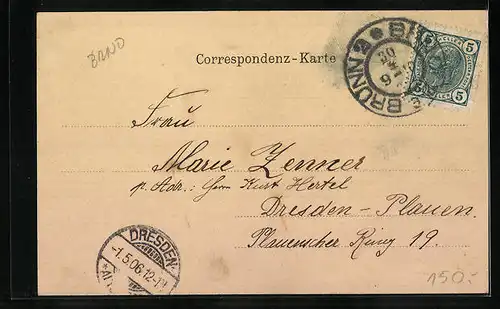 BRNO
Correspondenz-Karte
BRÜNN 2
5 5
5 5
Frau
Marie Zenner
p. Adr.: Herrn Kurt Hertel
Dresden-Plauen.
Plauenscher Ring 19.
DRESDEN
-1.5.06.12-
150.-